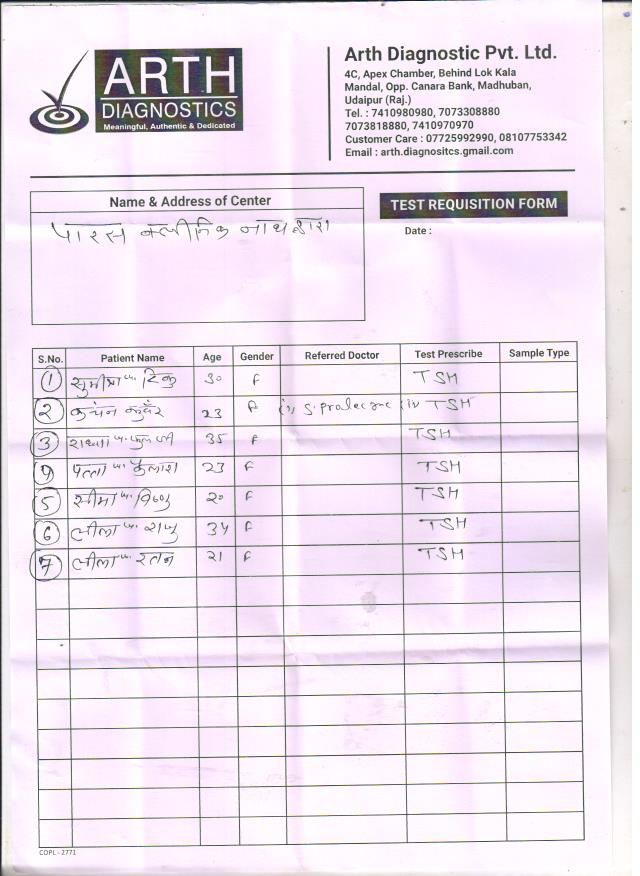 ARTH
DIAGNOSTICS
Meaningful, Authentic & Dedicated
Arth Diagnostic Pvt. Ltd.
4C, Apex Chamber, Behind Lok Kala
Mandal, Opp. Canara Bank, Madhuban,
Udaipur (Raj.)
Tel. : 7410980980, 7073308880
7073818880, 7410970970
Customer Care : 07725992990, 08107753342
Email : arth.diagnositcs.gmail.com
Name & Address of Center
पारस क्लीनिक नाथद्वारा
TEST REQUISITION FORM
Date :
S.No. Patient Name Age Gender Referred Doctor Test Prescribe Sample Type
1 सुमीत्रा w. टिकु 30 F TSH
2 कंचन कुवँर 23 F (i) S. prolac (ii) TSH
3 w. 35 F TSH
4 w. कैलाश 23 F TSH
5 सीमा w. विष्णु 20 F TSH
6 लीला w. राजु 34 F TSH
7 लीला w. रतन 21 F TSH
COPL - 2771